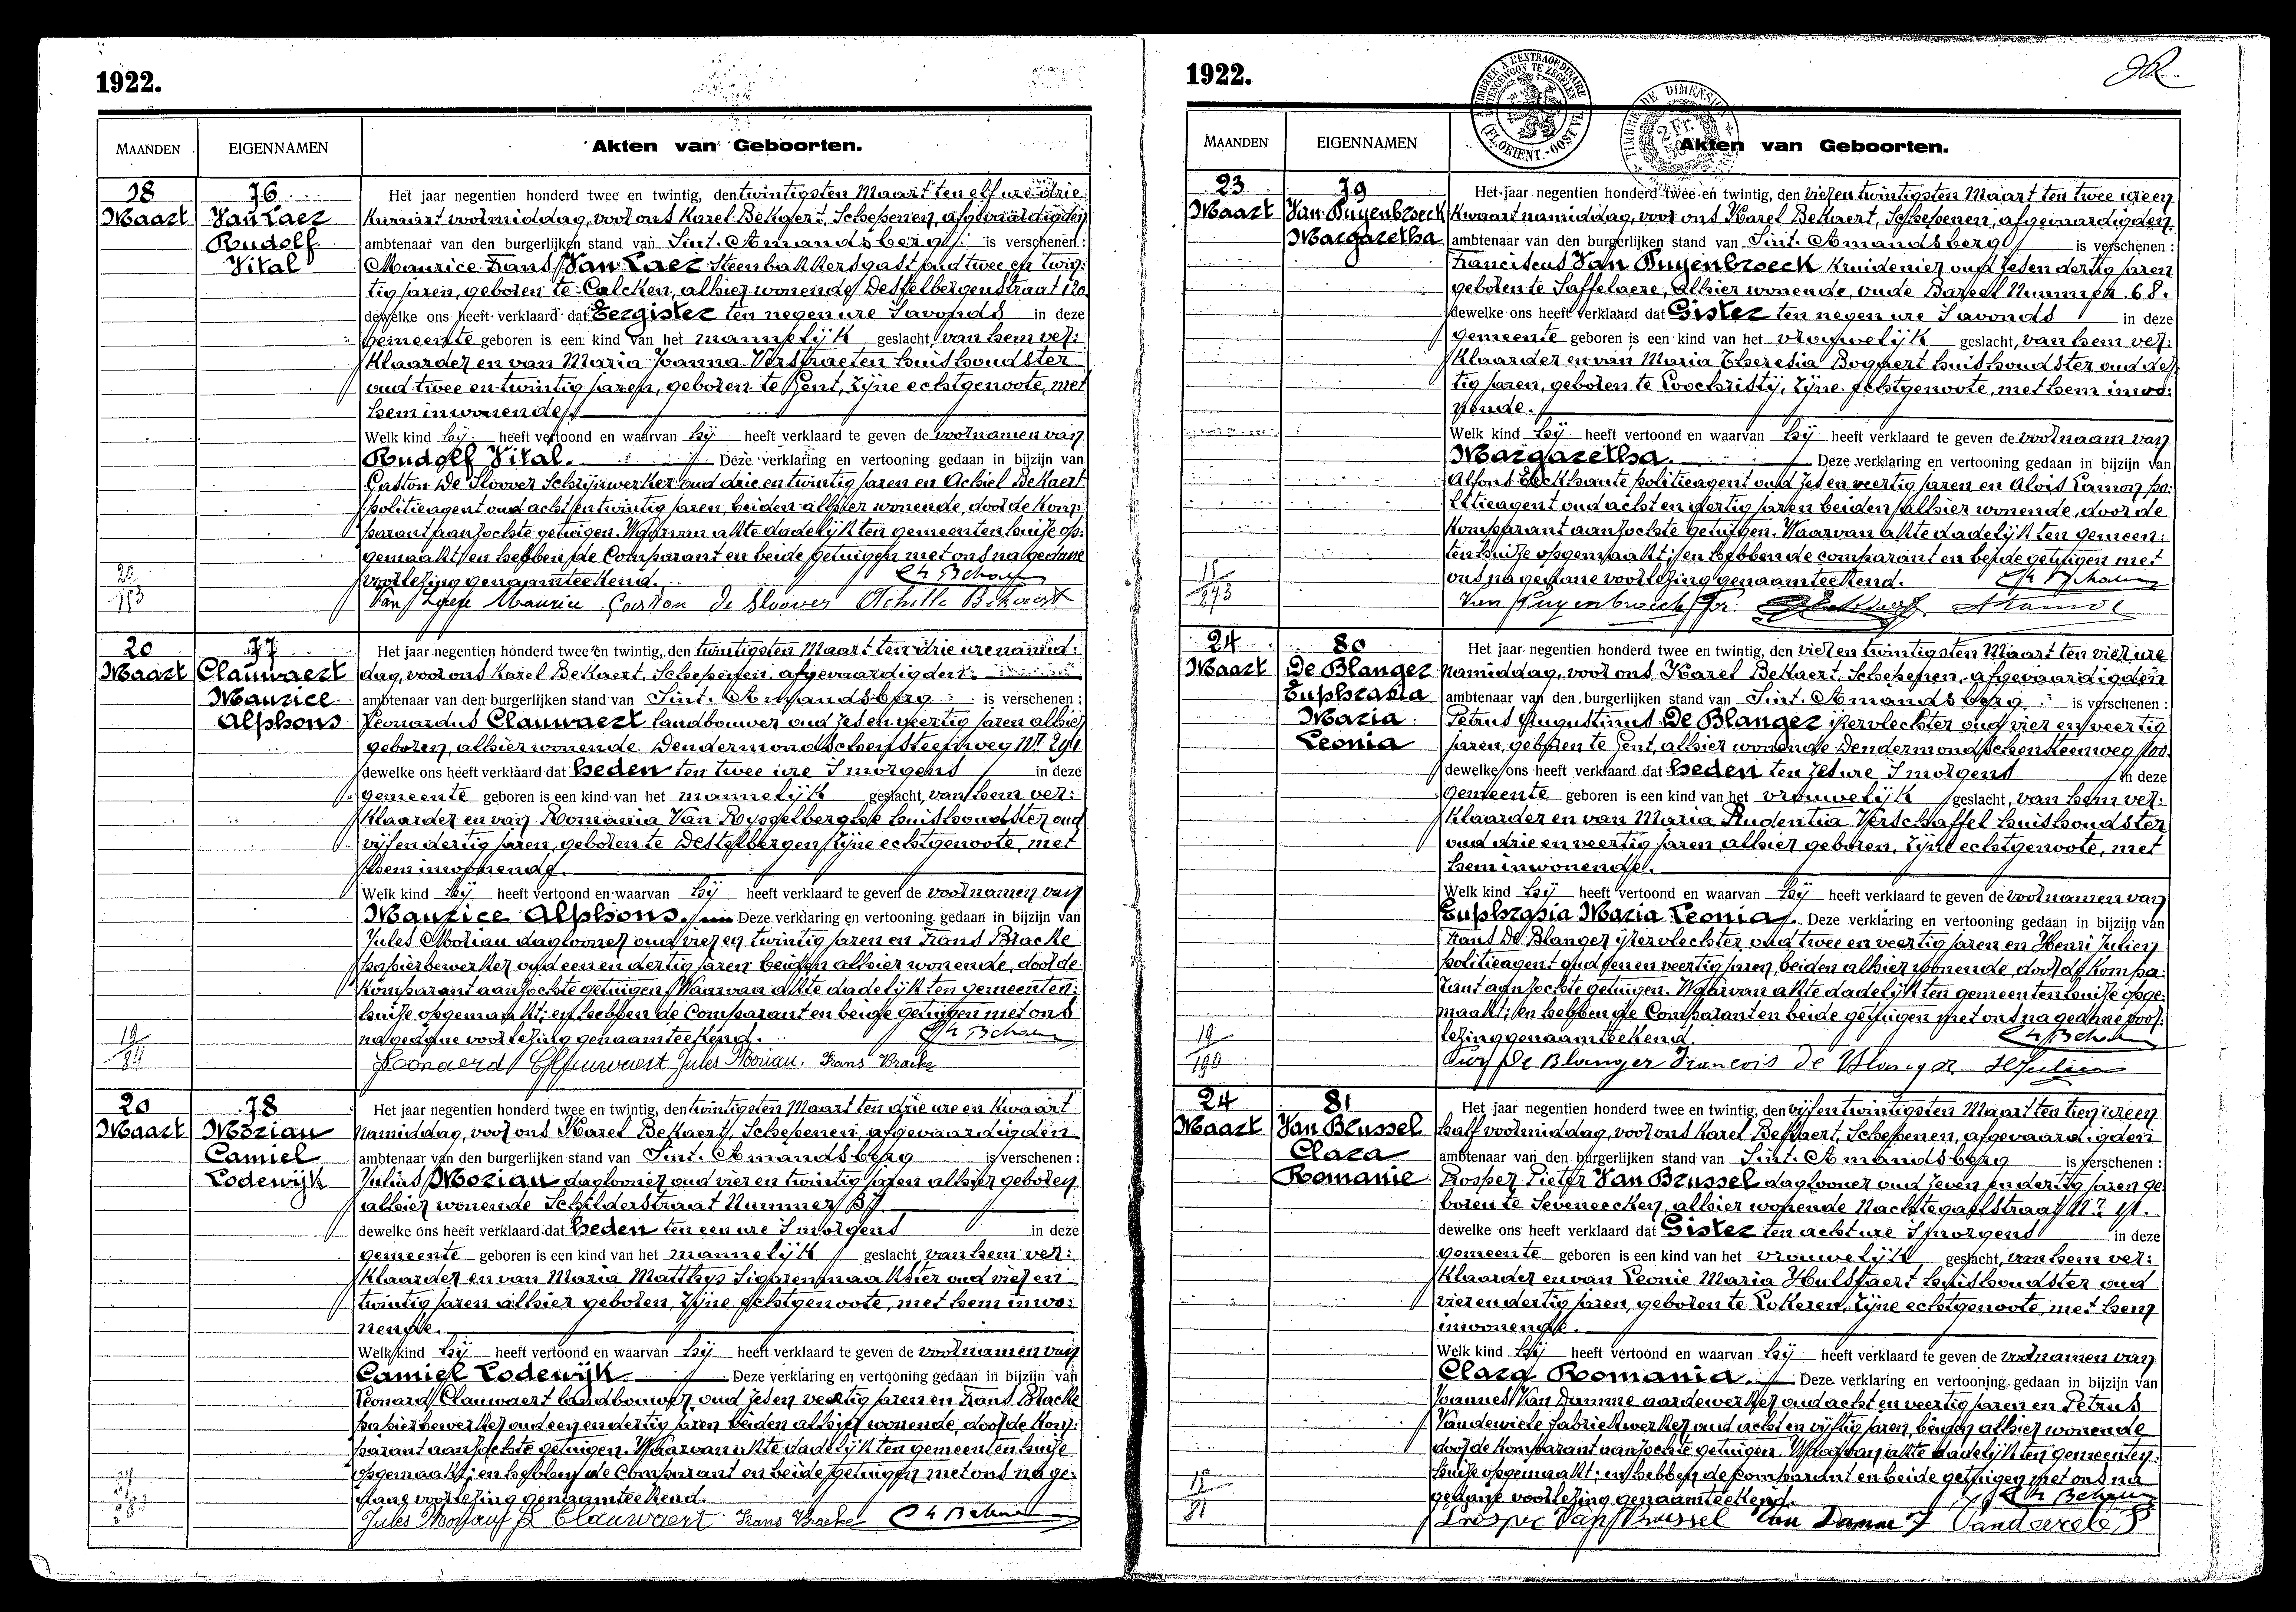 1922.
MAANDEN
EIGENNAMEN
Akten van Geboorten.
18
Maart
76
Van Laer
Rudolf
Vital
Het jaar negentien honderd twee en twintig, den twintigsten Maart ten elf ure drie
kwaart voormiddag, voor ons Karel Bekaert, Schepenen, afgevaardigden
ambtenaar van den burgerlijken stand van Sint. Amandsberg is verschenen :
Maurice Frans Van Laer Steenbakkersgast oud twee en twin:
tig jaren, geboren te Calcken, alhier wonende Desselbergenstraat 120
dewelke ons heeft verklaard dat Eergister ten negen ure S'avonds in deze
gemeente geboren is een kind van het mannelijk geslacht, van hem ver:
klaarder en van Maria Joanna Verstraeten huishoudster
oud twee en twintig jaren, geboren te Gent, zijne echtgenoote, met
hem inwonende
Welk kind hij heeft vertoond en waarvan hij heeft verklaard te geven de voornamen van
Rudolf Vital. Deze verklaring en vertooning gedaan in bijzijn van
Gaston De Sloover Schrijnwerker oud drie en twintig jaren en Achiel Bekaert
politieagent oud acht en twintig jaren, beiden alhier wonende, door de kom:
parant aanzochte getuigen. Waarvan akte dadelijk ten gemeentenhuize op:
gemaakt; en hebben de Comparant en beide getuigen met ons na gedane
voorlezing genaamteekend.
Maurice Gaston De Sloover Achille Bekaert
20
Maart
77
Clauwaert
Maurice
Alphons
Het jaar negentien honderd twee en twintig, den twintigsten Maart ten drie ure namid:
dag, voor ons Karel Bekaert, Schepenen, afgevaardigden
ambtenaar van den burgerlijken stand van Sint. Amandsberg is verschenen :
Leonardus Clauwaert landbouwer oud zes en veertig jaren alhier
geboren, alhier wonende Dendermondschensteenweg Nr.
dewelke ons heeft verklaard dat heden ten twee ure S'morgens in deze
gemeente geboren is een kind van het mannelijk geslacht, van hem ver:
klaarder en van Romania Van Rysselberghe huishoudster oud
vijf en dertig jaren, geboren te Destelbergen, zijne echtgenoote, met
hem inwonende.
Welk kind hij heeft vertoond en waarvan hij heeft verklaard te geven de voornamen van
Maurice Alphons. Deze verklaring en vertooning gedaan in bijzijn van
Jules Morian daglooner oud vier en twintig jaren en Frans Bracke
papierbewerker oud een en dertig jaren beiden alhier wonende, door de
komparant aanzochte getuigen. Waarvan akte dadelijk ten gemeenten:
huize opgemaakt; en hebben de Comparant en beide getuigen met ons
na gedane voorlezing genaamteekend.
Leonaerd Clauwaert Jules Morian. Frans Bracke
20
Maart
78
Morian
Camiel
Lodewijk
Het jaar negentien honderd twee en twintig, den twintigsten Maart ten drie ure en kwaart
namiddag, voor ons Karel Bekaert, Schepenen, afgevaardigden
ambtenaar van den burgerlijken stand van Sint. Amandsberg is verschenen :
Julius Morian daglooner oud vier en twintig jaren alhier geboren
alhier wonende Schilderstraat Nummer
dewelke ons heeft verklaard dat heden ten een ure S'morgens in deze
gemeente geboren is een kind van het mannelijk geslacht van hem ver:
klaarder en van Maria Matthys Sigarenmaakster oud vier en
twintig jaren alhier geboren, zijne echtgenoote, met hem inwo:
nende.
Welk kind hij heeft vertoond en waarvan hij heeft verklaard te geven de voornamen van
Camiel Lodewijk. Deze verklaring en vertooning gedaan in bijzijn van
Leonard Clauwaert landbouwer oud zes en veertig jaren en Frans Bracke
papierbewerker oud een en dertig jaren beiden alhier wonende, door de kom:
parant aanzochte getuigen. Waarvan akte dadelijk ten gemeentenhuize
opgemaakt; en hebben de Comparant en beide getuigen met ons na ge:
dane voorlezing genaamteekend.
Jules Morian Clauwaert Frans Bracke
1922.
TIMBRE DE DIMENSION
2 Fr.
MAANDEN
EIGENNAMEN
Akten van Geboorten.
23
Maart
79
Van Puyenbroeck
Margaretha
Het jaar negentien honderd twee en twintig, den vier en twintigsten Maart ten twee ure en
kwaart namiddag, voor ons Karel Bekaert, Schepenen, afgevaardigden
ambtenaar van den burgerlijken stand van Sint. Amandsberg is verschenen :
Franciscus Van Puyenbroeck kruidenier oud zes en dertig jaren
geboren te Saffelaere, Alhier wonende, oude Bareel Nummer 68.
dewelke ons heeft verklaard dat Gister ten negen ure S'avonds in deze
gemeente geboren is een kind van het vrouwelijk geslacht, van hem ver:
klaarder en van Maria Theresia Bogaert huishoudster oud der
tig jaren, geboren te Loochristij, zijne echtgenoote, met hem inwo:
nende.
Welk kind hij heeft vertoond en waarvan hij heeft verklaard te geven de voornaam van
Margaretha. Deze verklaring en vertooning gedaan in bijzijn van
Alfons Eeckhaute politieagent oud zes en veertig jaren en Alois Lamon po:
litieagent oud acht en dertig jaren beiden alhier wonende, door de
komparant aanzochte getuigen. Waarvan akte dadelijk ten gemeen:
tenhuize opgemaakt; en hebben de comparant en beide getuigen met
ons na gedane voorlezing genaamteekend.
Van Puyenbroeck Fr.
24
Maart
80
De Blanger
Euphrasia
Maria
Leonia
Het jaar negentien honderd twee en twintig, den vier en twintigsten Maart ten vier ure
namiddag, voor ons Karel Bekaert, Schepenen, afgevaardigden
ambtenaar van den burgerlijken stand van Sint. Amandsberg is verschenen :
Petrus Augustinus De Blanger ijzervlechter oud vier en veertig
jaren, geboren te Gent, alhier wonende Dendermondschensteenweg
dewelke ons heeft verklaard dat heden ten zes ure S'morgens in deze
gemeente geboren is een kind van het vrouwelijk geslacht, van hem ver:
klaarder en van Maria Prudentia Verschaffel huishoudster
oud drie en veertig jaren alhier geboren, zijne echtgenoote, met
hem inwonende.
Welk kind hij heeft vertoond en waarvan hij heeft verklaard te geven de voornamen van
Euphrasia Maria Leonia. Deze verklaring en vertooning gedaan in bijzijn van
Frans De Blanger ijzervlechter oud twee en veertig jaren en Henri Julien
politieagent oud een en veertig jaren, beiden alhier wonende, door de kompa:
rant aanzochte getuigen. Waarvan akte dadelijk ten gemeentenhuize opge:
maakt; en hebben de Comparant en beide getuigen met ons na gedane voor:
lezing genaamteekend.
De Blanger Francois De Blanger HJulien
24
Maart
81
Van Brussel
Clara
Romanie
Het jaar negentien honderd twee en twintig, den vijf en twintigsten Maart ten tien ure en
half voormiddag, voor ons Karel Bekaert, Schepenen, afgevaardigden
ambtenaar van den burgerlijken stand van Sint. Amandsberg is verschenen :
Prosper Pieter Van Brussel daglooner oud zeven en dertig jaren ge
boren te Seveneecken, alhier wonende Nachtegaelstraat Nr.
dewelke ons heeft verklaard dat Gister ten acht ure S'morgens in deze
gemeente geboren is een kind van het vrouwelijk geslacht, van hem ver:
klaarder en van Leonie Maria Hulstaert huishoudster oud
vier en dertig jaren, geboren te Lokeren, zijne echtgenoote, met hem
inwonende.
Welk kind hij heeft vertoond en waarvan hij heeft verklaard te geven de voornamen van
Clara Romania. Deze verklaring en vertooning gedaan in bijzijn van
Joannes Van Damme aardewerker oud acht en veertig jaren en Petrus
Vandewiele fabriekwerker oud acht en vijftig jaren, beiden alhier wonende
door de komparant aanzochte getuigen. Waarvan akte dadelijk ten gemeenten
huize opgemaakt; en hebben de comparant en beide getuigen met ons na
gedane voorlezing genaamteekend.
Prosper Van Brussel Van Damme J Vandewiele P